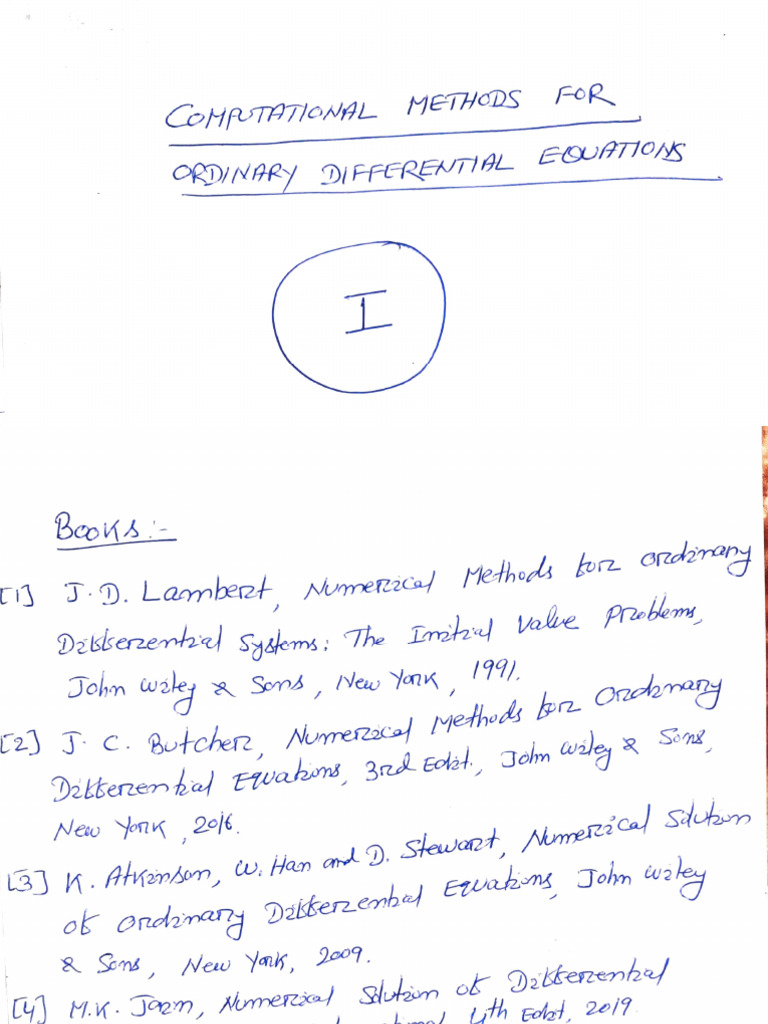 COMPUTATIONAL METHODS FOR
ORDINARY DIFFERENTIAL EQUATIONS
I
Books:-
[1] J.D. Lambert, Numerical Methods for Ordinary
Differential Systems: The Initial Value Problems,
John Wiley & Sons, New York, 1991.
[2] J. C. Butcher, Numerical Methods for Ordinary
Differential Equations, 3rd Edit., John Wiley & Sons,
New York, 2016.
[3] K. Atkinson, W. Han and D. Stewart, Numerical Solution
of Ordinary Differential Equations, John Wiley
& Sons, New York, 2009.
[4] M.K. Jain, Numerical Solution of Differential
4th Edit, 2019